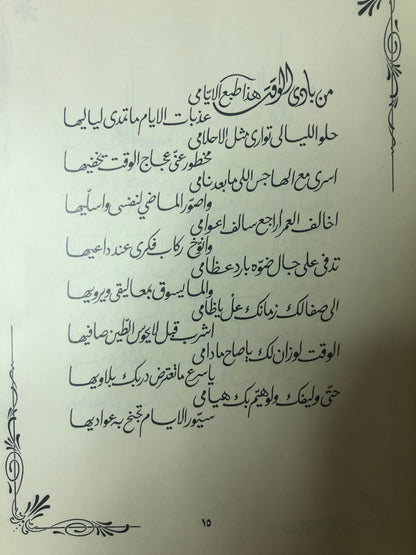 من بادى الوقت هذا طبع الايامى
عذبات الايام ما تمدى لياليها
حلو الليالى توارى مثل الاحلامى
مخطور عنّى عجاج الوقت يخفيها
اسرى مع الهاجس اللى ما بعد نامى
واصوّر الماضي لنفسى واسلّيها
اخالف العمر أراجع سالف اعوامى
وانوّخ ركاب فكرى عند داعيها
تدفى على جال ضوّه بارد عظامى
والما يسوق بمعاليقى ويرويها
الى صفا لك زمانك علّ ياظامى
اشرب قبل لا يحوس الطّين صافيها
الوقت لو زان لك ياصاح ما دامى
يا سرع ما تعترض دربك بلاويها
حتّى وليفك ولو هيّم بك هيامى
سيّور الايام تجنح به عواديها
١٥